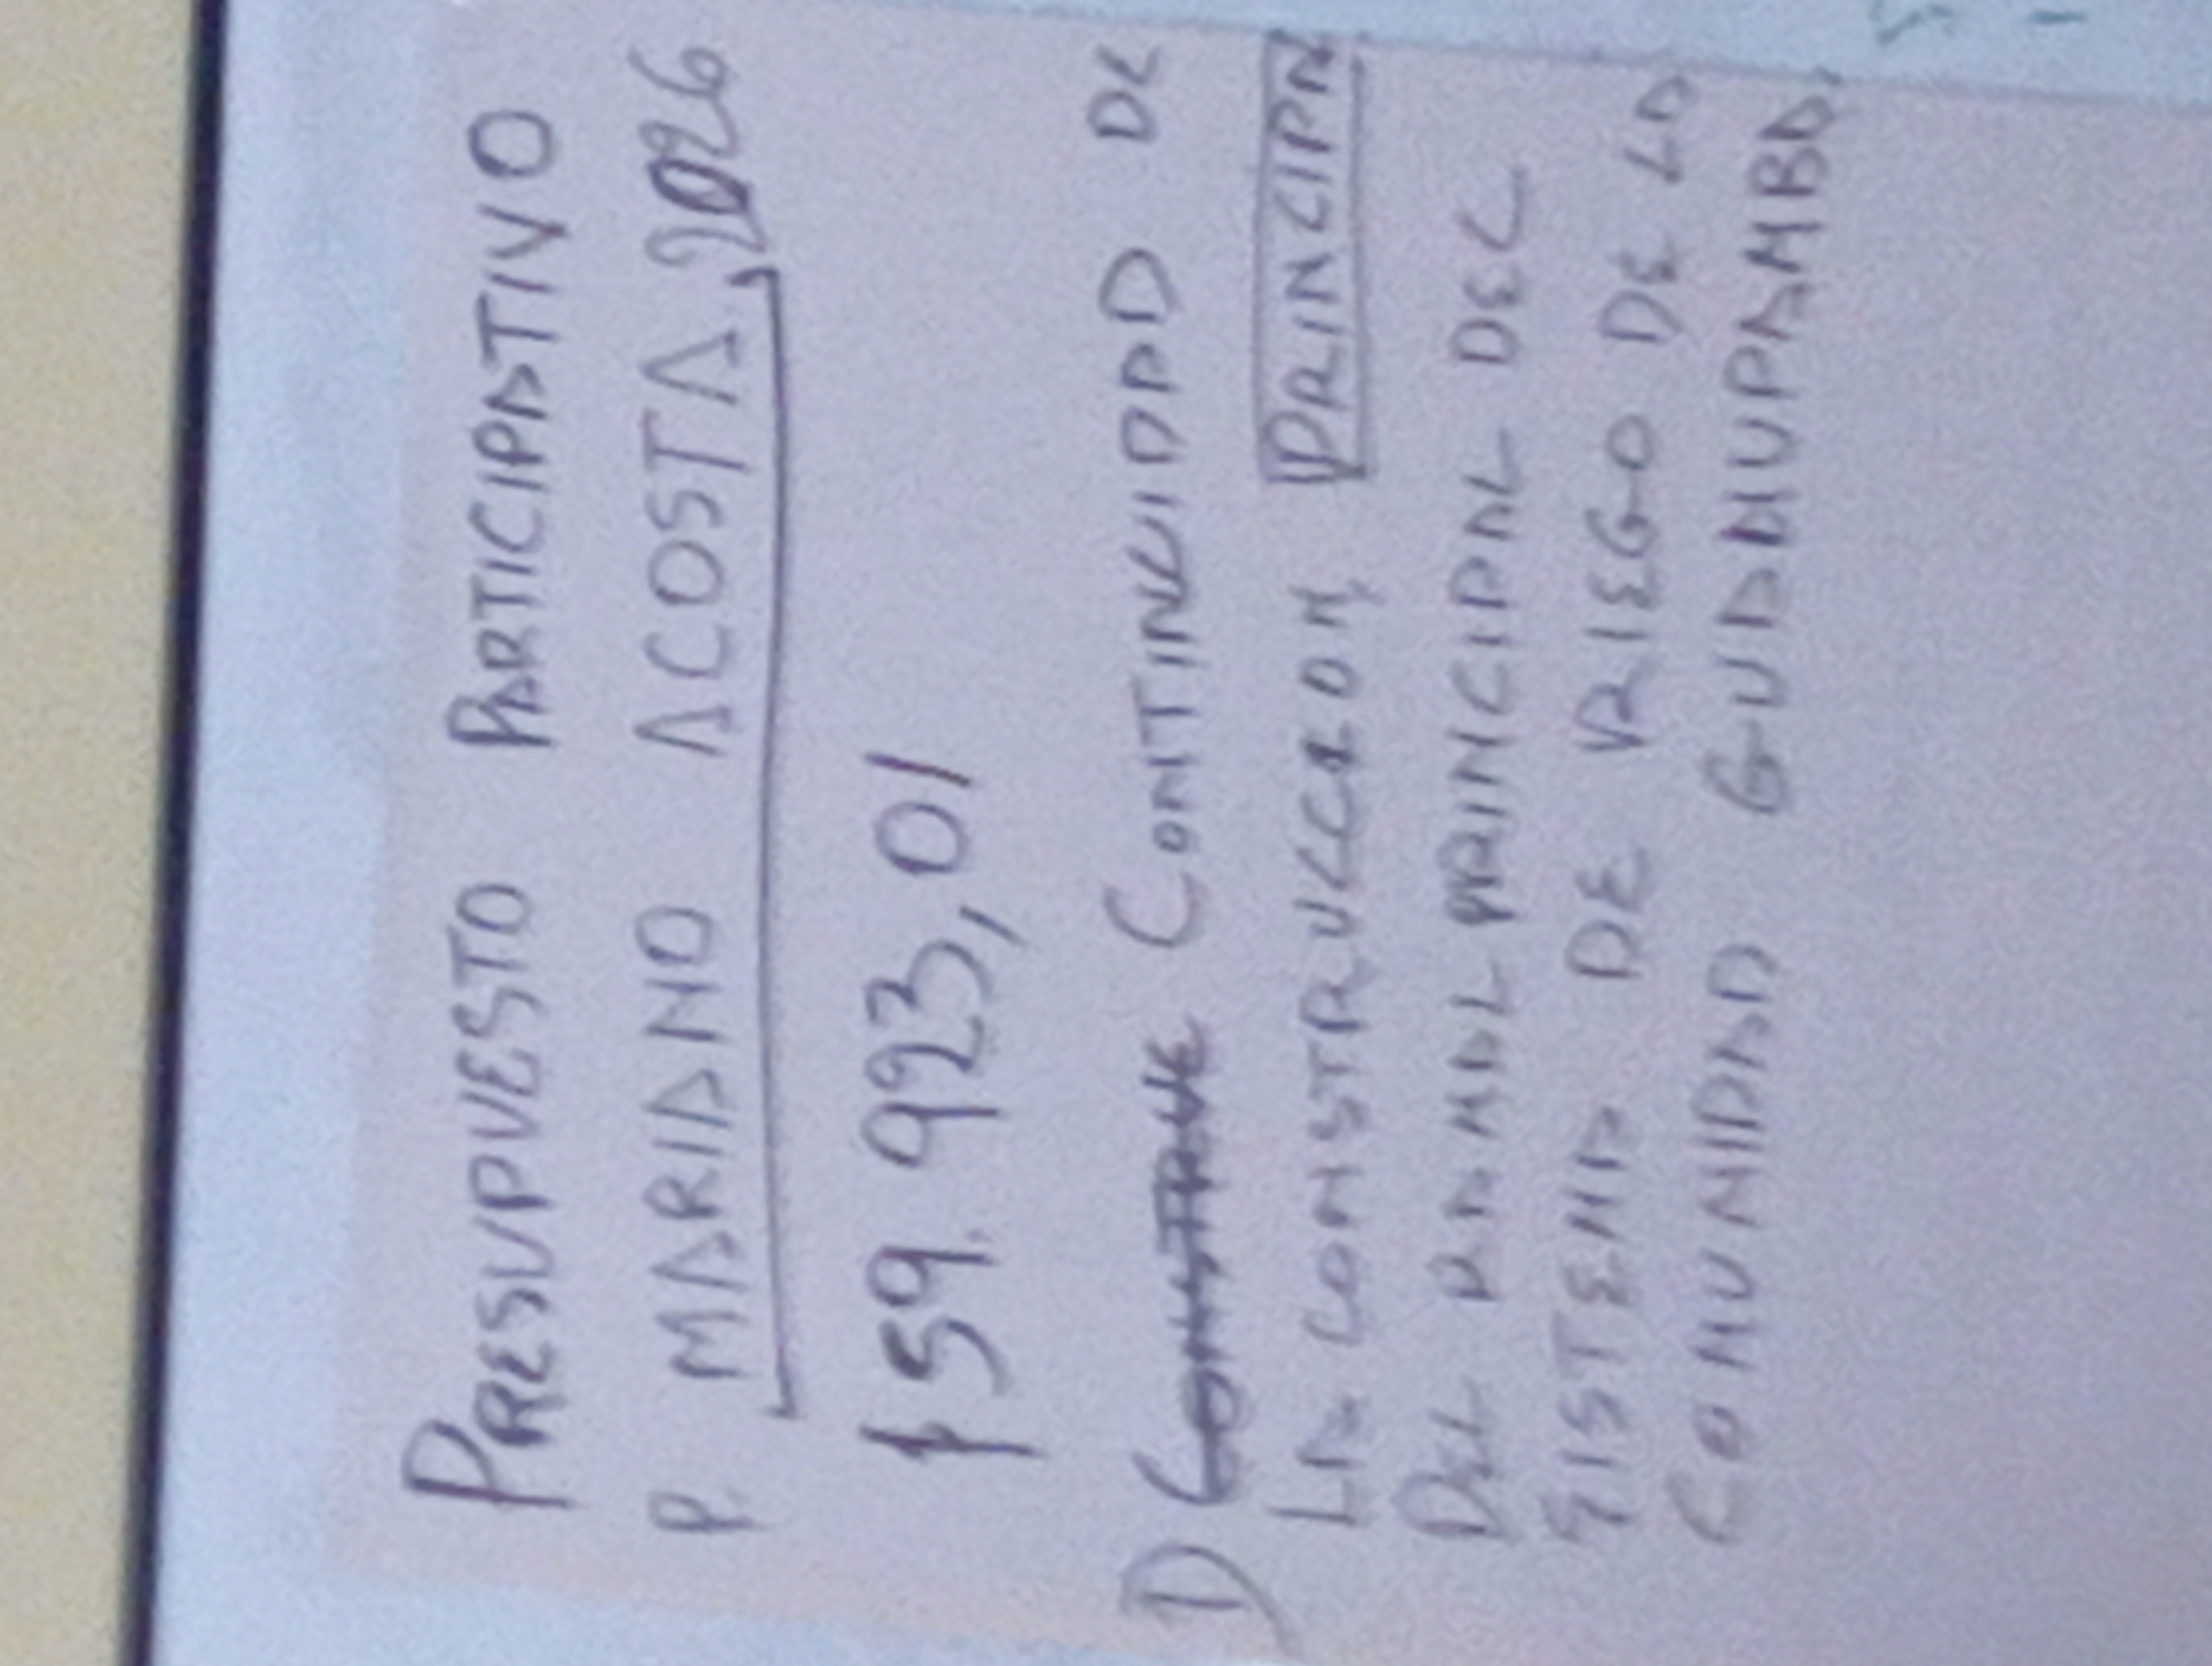 PRESUPUESTO PARTICIPATIVO
P. MARIANO ACOSTA, 2026
$ 59.923,01
1) CONTINUIDAD DE
LA CONSTRUCCION PRINCIPA
DEL RAMAL PRINCIPAL DEL
SISTEMA DE RIEGO DE LA
COMUNIDAD GUANUPAMBA,